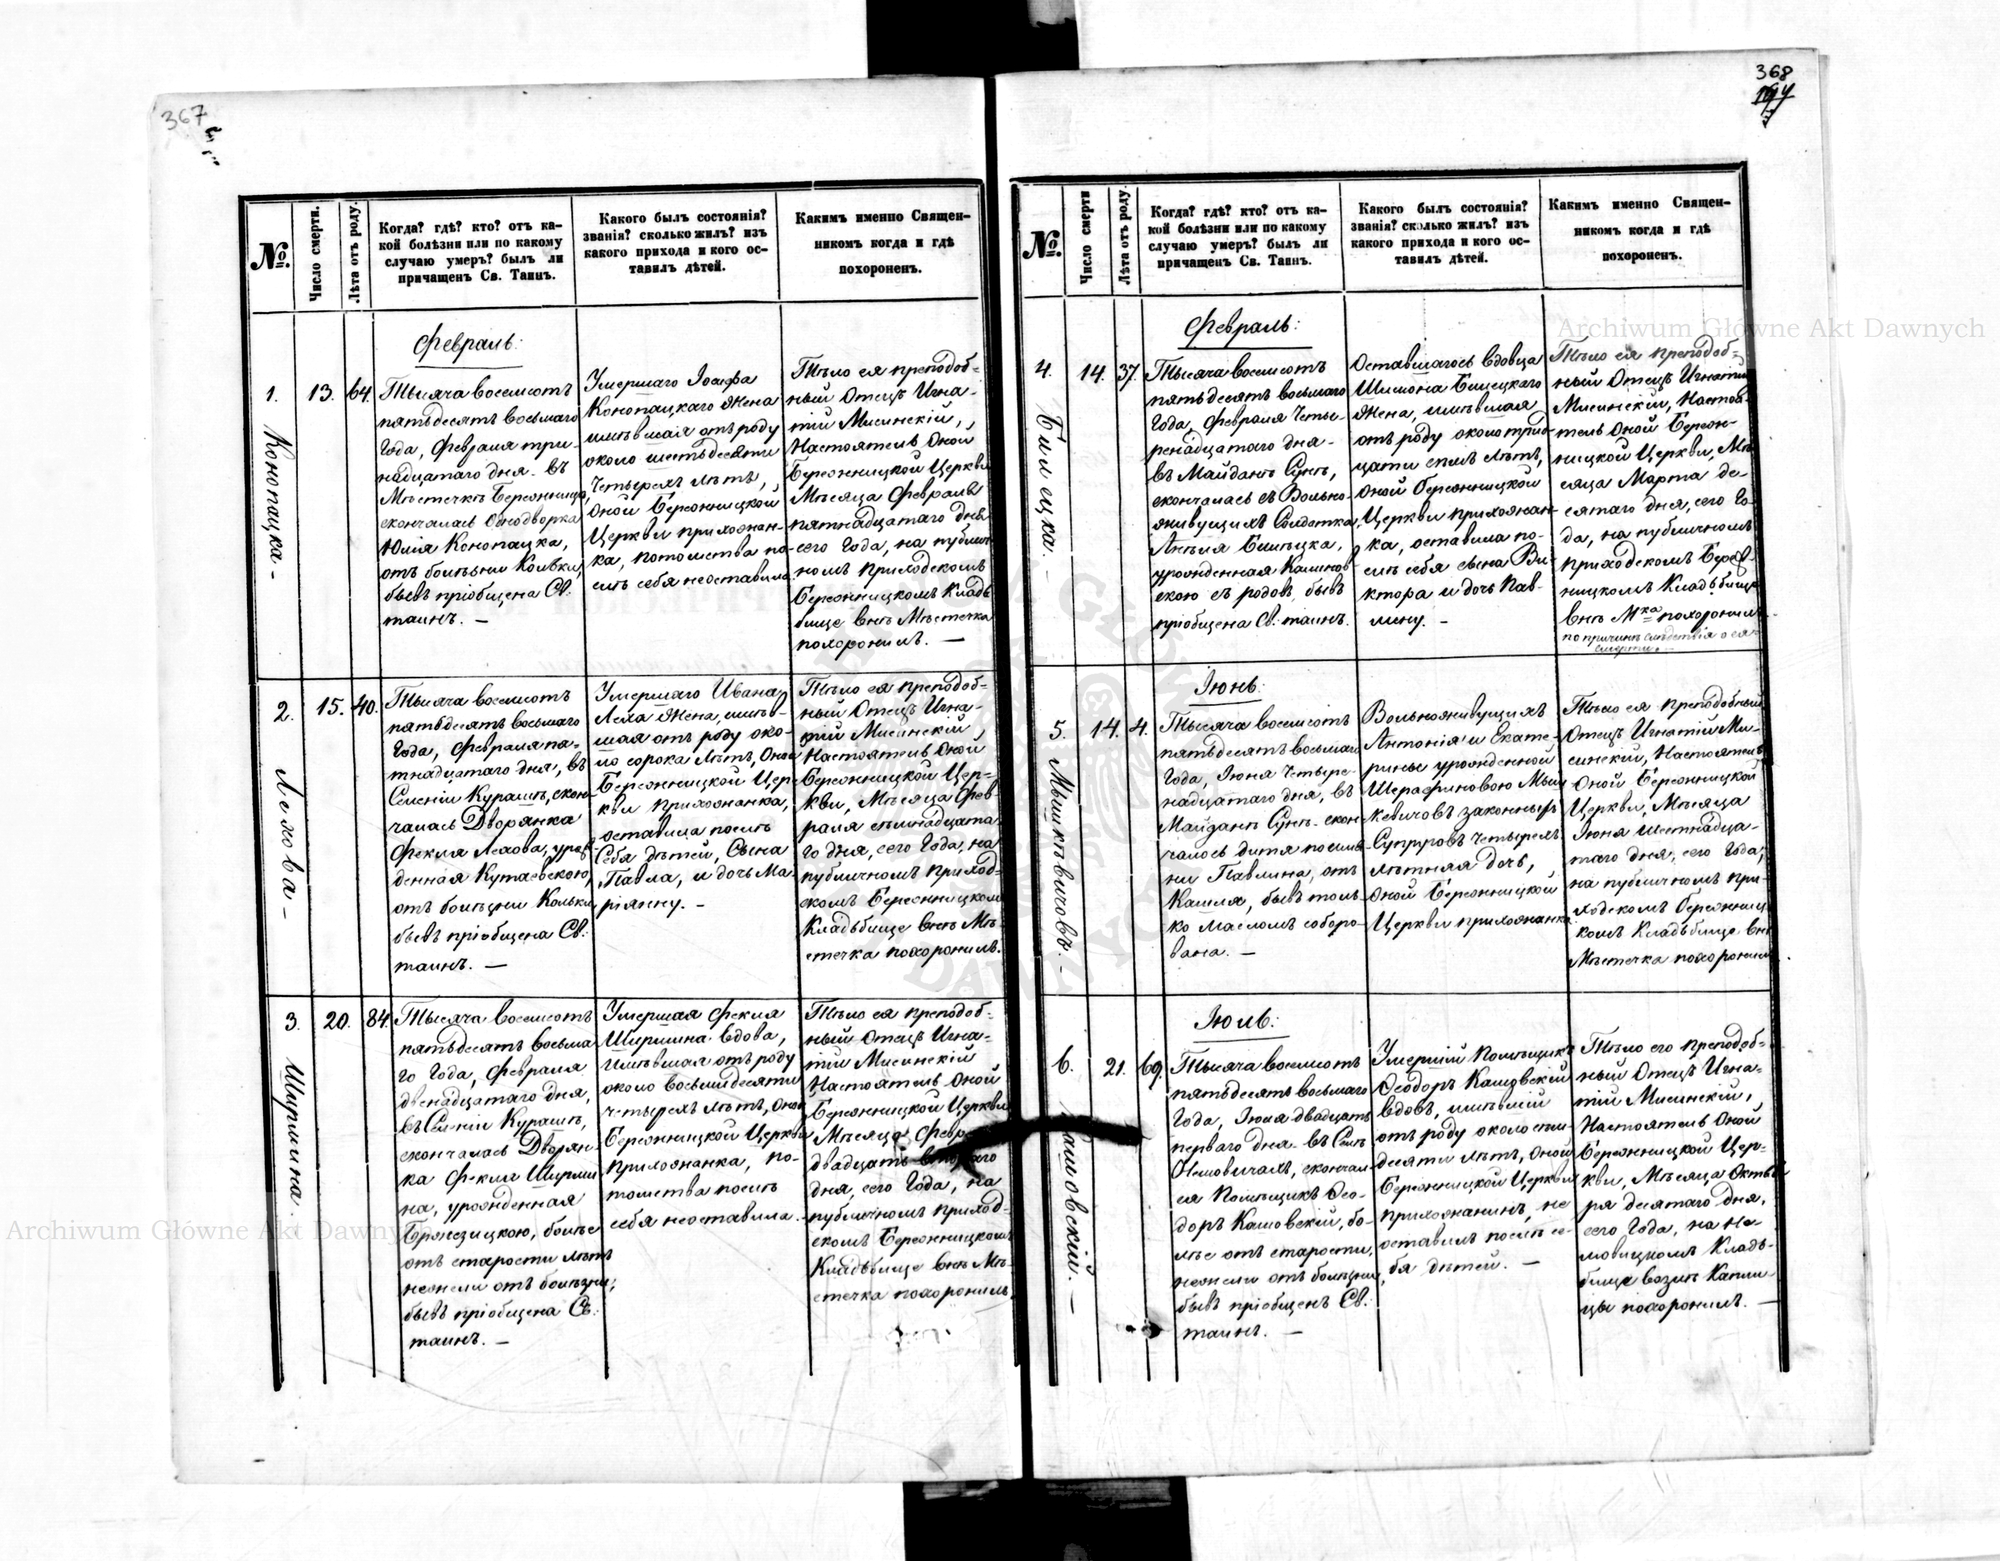 367
№.
Число смерти.
Лѣта отъ роду.
Когда? гдѣ? кто? отъ ка-
кой болѣзни или по какому
случаю умеръ? былъ ли
причащенъ Св. Таинъ.
Какого былъ состоянія?
званія? сколько жилъ? изъ
какого прихода и кого ос-
тавилъ дѣтей.
Какимъ именно Священ-
никомъ когда и гдѣ
похороненъ.
Февраль:
1.
Конопацка -
13.
64.
Тысяча восемсотъ
пятьдесятъ восьмаго
Года, Февраля три-
надцатаго дня - въ
Мѣстечкѣ Бережница,
скончалась Однодворка
Юлія Конопацка,
отъ болѣзни Кольки,
бывъ пріобщена Св:
таинъ. —
Умершаго Іосифа
Конопацкаго Жена
имѣвшая отъ роду
около шестьдесяти
четырехъ лѣтъ,
Оной Бережницкой
Церкви прихожан-
ка, потомства по-
слѣ себя неоставила.
Тѣло ея преподоб-
ный Отецъ Игна-
тій Мисинскій,
Настоятель Оной
Бережницкой Церкви
Мѣсяца Февраля
пятнадцатаго дня
сего Года, на публич-
номъ Приходскомъ
Бережницкомъ Кладъ-
бище внѣ Мѣстечка
похоронилъ. —
2.
Лехова -
15.
40.
Тысяча восемсотъ
пятьдесятъ восьмаго
Года, Февраля пя-
тнадцатаго дня, въ
Селеніи Курашъ, скон-
чалась Дворянка
Фекля Лехова, урож-
денная Кутаевскою,
отъ болѣзни Кольки
бывъ пріобщена Св:
таинъ. —
Умершаго Ивана
Леха Жена, имѣв-
шая отъ роду око-
ло сорока лѣтъ, Оной
Бережницкой Цер-
кви прихожанка,
оставила послѣ
Себя дѣтей, Сына
Павла, и дочь Ма-
ріянну. -
Тѣло ея преподоб-
ный Отецъ Игна-
тій Мисинскій,
Настоятель Оной
Бережницкой Цер-
кви, Мѣсяца Фев-
раля семнадцата-
го дня, сего Года, на
публичномъ приход-
скомъ Бережницкомъ
Кладъбище внѣ Мѣ-
стечка похоронилъ.
3.
Ширмина.
20.
84.
Тысяча восемсотъ
пятьдесятъ восьма-
го Года, Февраля
двенадцатаго дня,
въ Селеніи Курашъ,
скончалась Дворян-
ка Фекля Ширми-
на, урожденная
отъ старости лѣтъ
нежели отъ болѣзни,
бывъ пріобщена Св:
таинъ. —
Умершая Фекля
Ширмина вдова,
имѣвшая отъ роду
около восьмидесяти
четырехъ лѣтъ, Оной
Бережницкой Церкви
прихожанка, по-
томства послѣ
себя неоставила.
Тѣло ея преподоб-
ный Отецъ Игна-
тій Мисинскій
Настоятель Оной
Бережницкой Церкви
Мѣсяца Февраля
двадцать втораго
дня, сего Года, на
публичномъ приход-
скомъ Бережницкомъ
Кладъбище внѣ Мѣ-
стечка похоронилъ.
368
№.
Число смерти
Лѣта отъ роду.
Когда? гдѣ? кто? отъ ка-
кой болѣзни или по какому
случаю умеръ? былъ ли
причащенъ Св. Таинъ.
Какого былъ состоянія?
званія? сколько жилъ? изъ
какого прихода и кого ос-
тавилъ дѣтей.
Какимъ именно Священ-
никомъ когда и гдѣ
похороненъ.
Февраль:
4.
Билецка. -
14.
37.
Тысяча восемсотъ
пятьдесятъ восьмаго
Года, Февраля Четы-
ренадцатаго дня -
въ Майданѣ Сунѣ,
скончалась съ Вольно-
живущихъ Солдатка,
Анеля
урожденная
скою съ родовъ, бывъ
пріобщена Св: таинъ.
Оставшагось вдовца
Шимона Билецкаго
Жена, имѣвшая
отъ роду около трид-
цати семь лѣтъ,
Оной Бережницкой
Церкви прихожан-
ка, оставила по-
слѣ себя сына Ви-
ктора и дочь Пав-
лину. -
Тѣло ея преподоб-
ный Отецъ Игнатій
Мисинскій, Настоя-
тель Оной Береж-
ницкой Церкви, Мѣ-
сяца Марта де-
сятаго дня, сего Го-
да, на публичномъ
приходскомъ Береж-
ницкомъ Кладъбище
внѣ М-ка похоронилъ
по причинѣ слѣдствія о ея
смерти.
Іюнь:
5.
Мышкѣвичовъ. -
14.
4.
Тысяча восемсотъ
пятьдесятъ восьмаго
Года, Іюня Четыре-
надцатаго дня, въ
Майданѣ Сунѣ - скон-
чалось дитя по име-
ни Павлина, отъ
Кашля, бывъ толь-
ко масломъ соборо-
вана. —
Вольноживущихъ
Антонія и Екате-
рины урожденной
Шерафиновою Мыш-
кевичовъ законныхъ
Супруговъ четырехъ
лѣтняя дочь,
Оной Бережницкой
Церкви прихожанка
Тѣло ея преподобный
Отецъ Игнатій Ми-
синскій, Настоятель
Оной Бережницкой
Церкви, Мѣсяца
Іюня шестнадца-
таго дня, сего Года,
на публичномъ при-
ходскомъ Бережниц-
комъ Кладъбище внѣ
Мѣстечка похоронилъ.
Іюль:
6.
Кашовскій. —
21.
69.
Тысяча восемсотъ
пятьдесятъ восьмаго
Года, Іюля двадцать
перваго дня - въ Селѣ
скончал-
ся Помѣщикъ Ѳео-
доръ Кашовскій, бо-
лѣе отъ старости,
нежели отъ болѣзни,
бывъ пріобщенъ Св:
таинъ. —
Умершій Помѣщикъ
Ѳеодоръ Кашовскій
вдовъ, имѣвшій
отъ роду около семи-
десяти лѣтъ, Оной
Бережницкой Церкви
прихожанинъ, не
оставилъ послѣ се-
бя дѣтей. —
Тѣло его преподоб-
ный Отецъ Игна-
тій Мисинскій,
Настоятель Оной
Бережницкой Цер-
кви, Мѣсяца Октяб-
ря десятаго дня,
сего Года, на Не-
мовицкомъ Кладъ-
бище возлѣ Капли-
цы похоронилъ. —
Archiwum Główne Akt Dawnych
Archiwum Główne Akt Dawnych